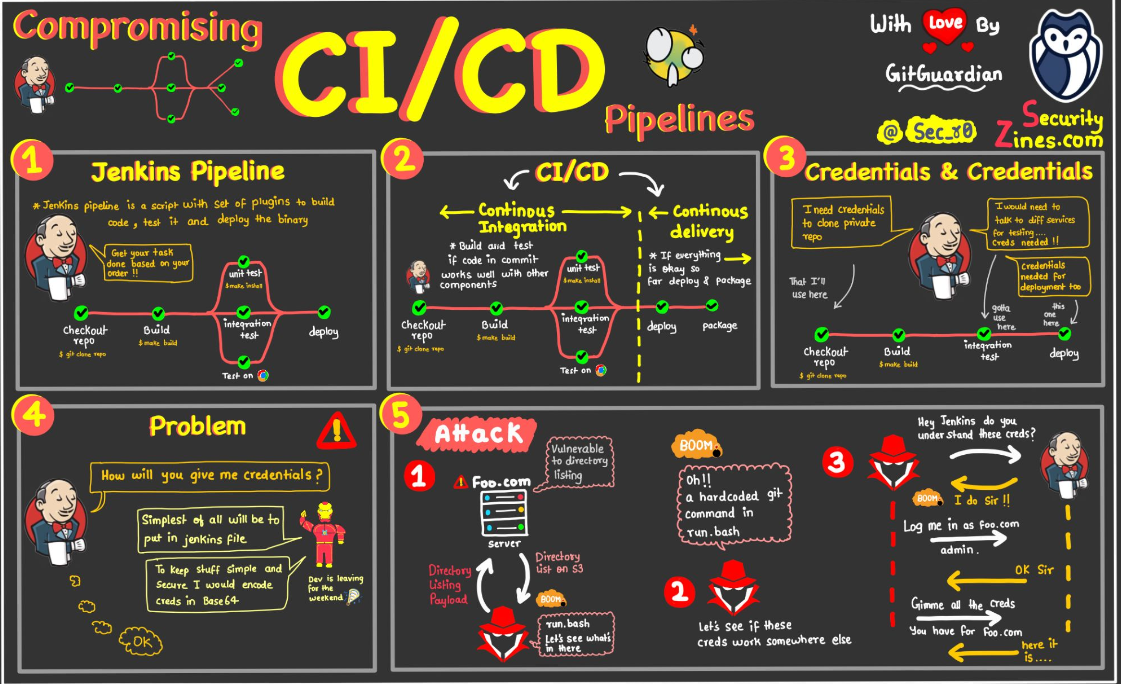 Compromising
CI/CD
Pipelines
With Love By
GitGuardian
@ Sec_r0
Security
Zines.com
1
Jenkins Pipeline
* Jenkins pipeline is a script with set of plugins to build
code, test it and deploy the binary
Get your task
done based on your
order !!
unit test
$ make install
Checkout
repo
$ git clone repo
Build
$ make build
integration
test
deploy
Test on
2
CI/CD
Continous
Integration
Continous
delivery
* Build and test
if code in commit
works well with other
components
* If everything
is okay so
far deploy & package
unit test
$ make install
Checkout
repo
$ git clone repo
Build
$ make build
integration
test
deploy
package
Test on
3
Credentials & Credentials
I need credentials
to clone private
repo
I would need to
talk to diff services
for testing....
Creds needed !!
Credentials
needed for
deployment too
That I'll
use here
gotta
use
here
this
one
here
Checkout
repo
$ git clone repo
Build
$ make build
integration
test
deploy
4
Problem
How will you give me credentials ?
Simplest of all will be to
put in jenkins file
To keep stuff simple and
secure I would encode
creds in Base64
Dev is leaving
for the
weekend
OK
5
Attack
1
Foo.com
Vulnerable
to directory
listing
server
Directory
Listing
Payload
Directory
list on S3
BOOM
run.bash
Let's see what's
in there
BOOM
Oh!!
a hardcoded git
command in
run.bash
2
Let's see if these
creds work somewhere else
3
Hey Jenkins do you
understand these creds?
BOOM
I do Sir !!
Log me in as foo.com
admin.
OK Sir
Gimme all the creds
You have for foo.com
here it
is....